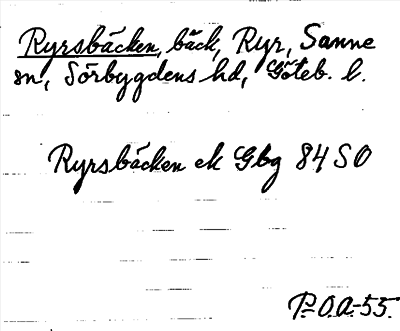 Ryrsbäcken, bäck, Ryr, Sanne
sn, Sörbygdens hd, Göteb. l.
Ryrsbäcken ek Gbg 84 SO
P.O.A-55.